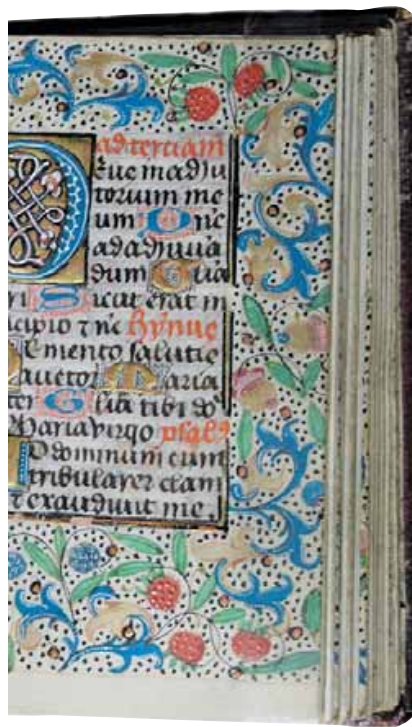 ad terciam
Eus in adiu
torium me
um One
ad adiuua
dum Glia
ri Sicut erat in
cipio & nc Hymnus
emento salutis
auctor Maria
tor Glia tibi do
Maria virgo psalm
D dominum cum
tribularer clam
et exaudiuit me